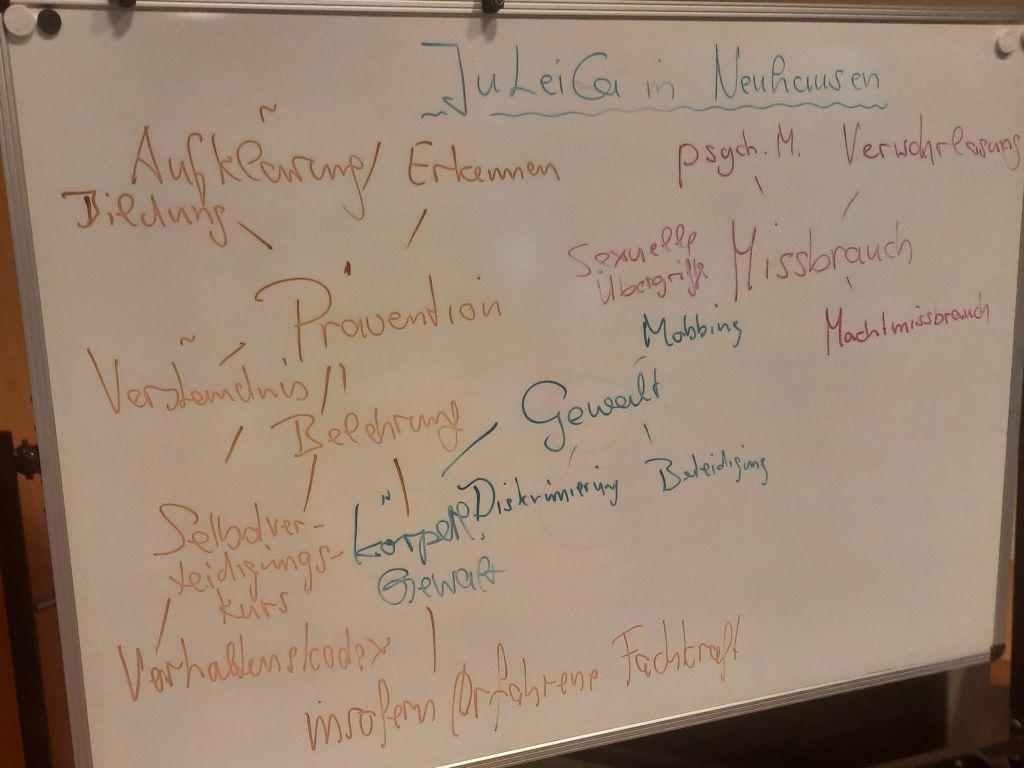 JuLeiCa in Neuhausen
Aufklärung/ Erkennen
Bildung
psych. M. Verwahrlosung
Sexuelle
Übergriffe
Missbrauch
Machtmissbrauch
Prävention
Mobbing
Verständnis
Gewalt
Belehrung
Diskriminierung Beleidigung
Selbstver-
teidigungs-
kurs
körperl.
Gewalt
Verhaltenskodex
insofern erfahrene Fachkraft